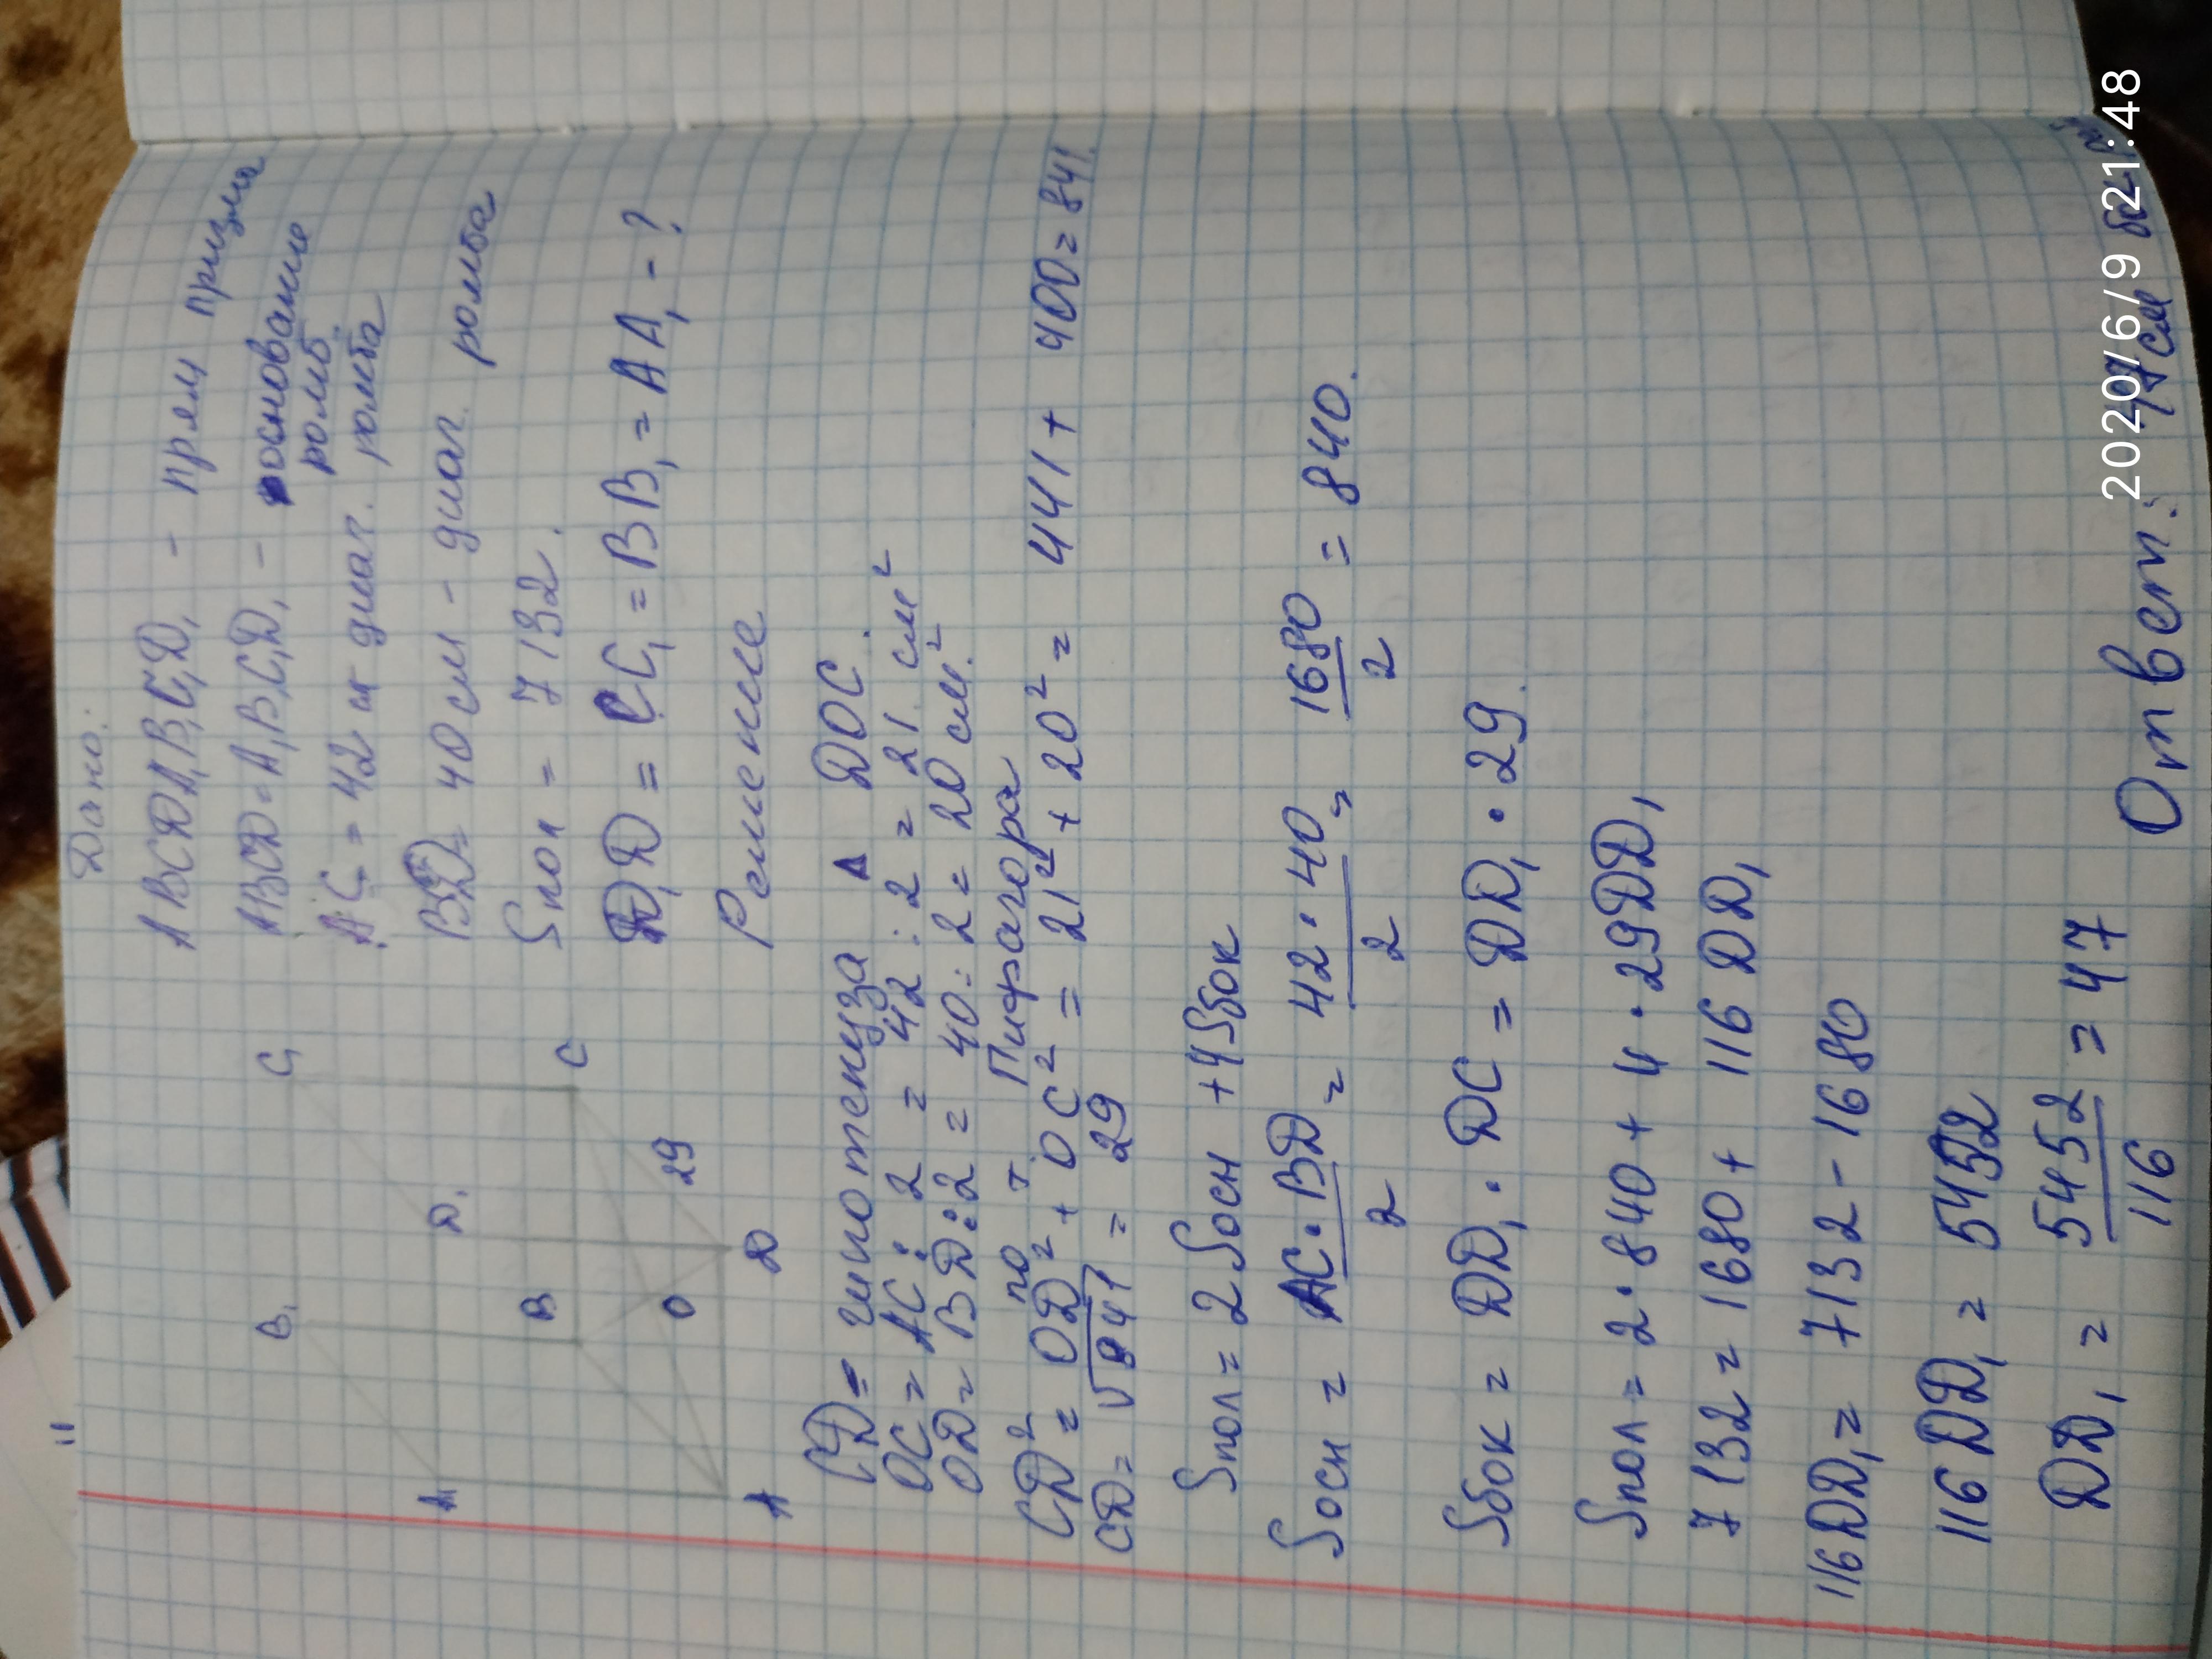 Дано:
ABCDA₁B₁C₁D₁ - прям призма
ABCD = A₁B₁C₁D₁ - основание
ромб.
AC = 42 см диаг. ромба
BD = 40 см - диаг. ромба
Sпол = 7132.
D₁D = CC₁ = BB₁ = AA₁ - ?
B₁
C₁
A₁
D₁
B
C
O
29
A
D
Решение
CD = гипотенуза Δ DOC.
OC = AC : 2 = 42 : 2 = 21. см²
OD = BD : 2 = 40 : 2 = 20 см.²
по т. Пифагора
CD² = OD² + OC² = 21² + 20² = 441 + 400 = 841.
CD = √841 = 29
Sпол = 2Sосн + 4Sбок
Sосн = AC · BD / 2 = 42 · 40 / 2 = 1680 / 2 = 840.
Sбок = DD₁ · DC = DD₁ · 29.
Sпол = 2 · 840 + 4 · 29DD₁
7132 = 1680 + 116 DD₁
116DD₁ = 7132 - 1680
116DD₁ = 5452
DD₁ = 5452 / 116 = 47
Ответ: см
2020/6/9 21:48